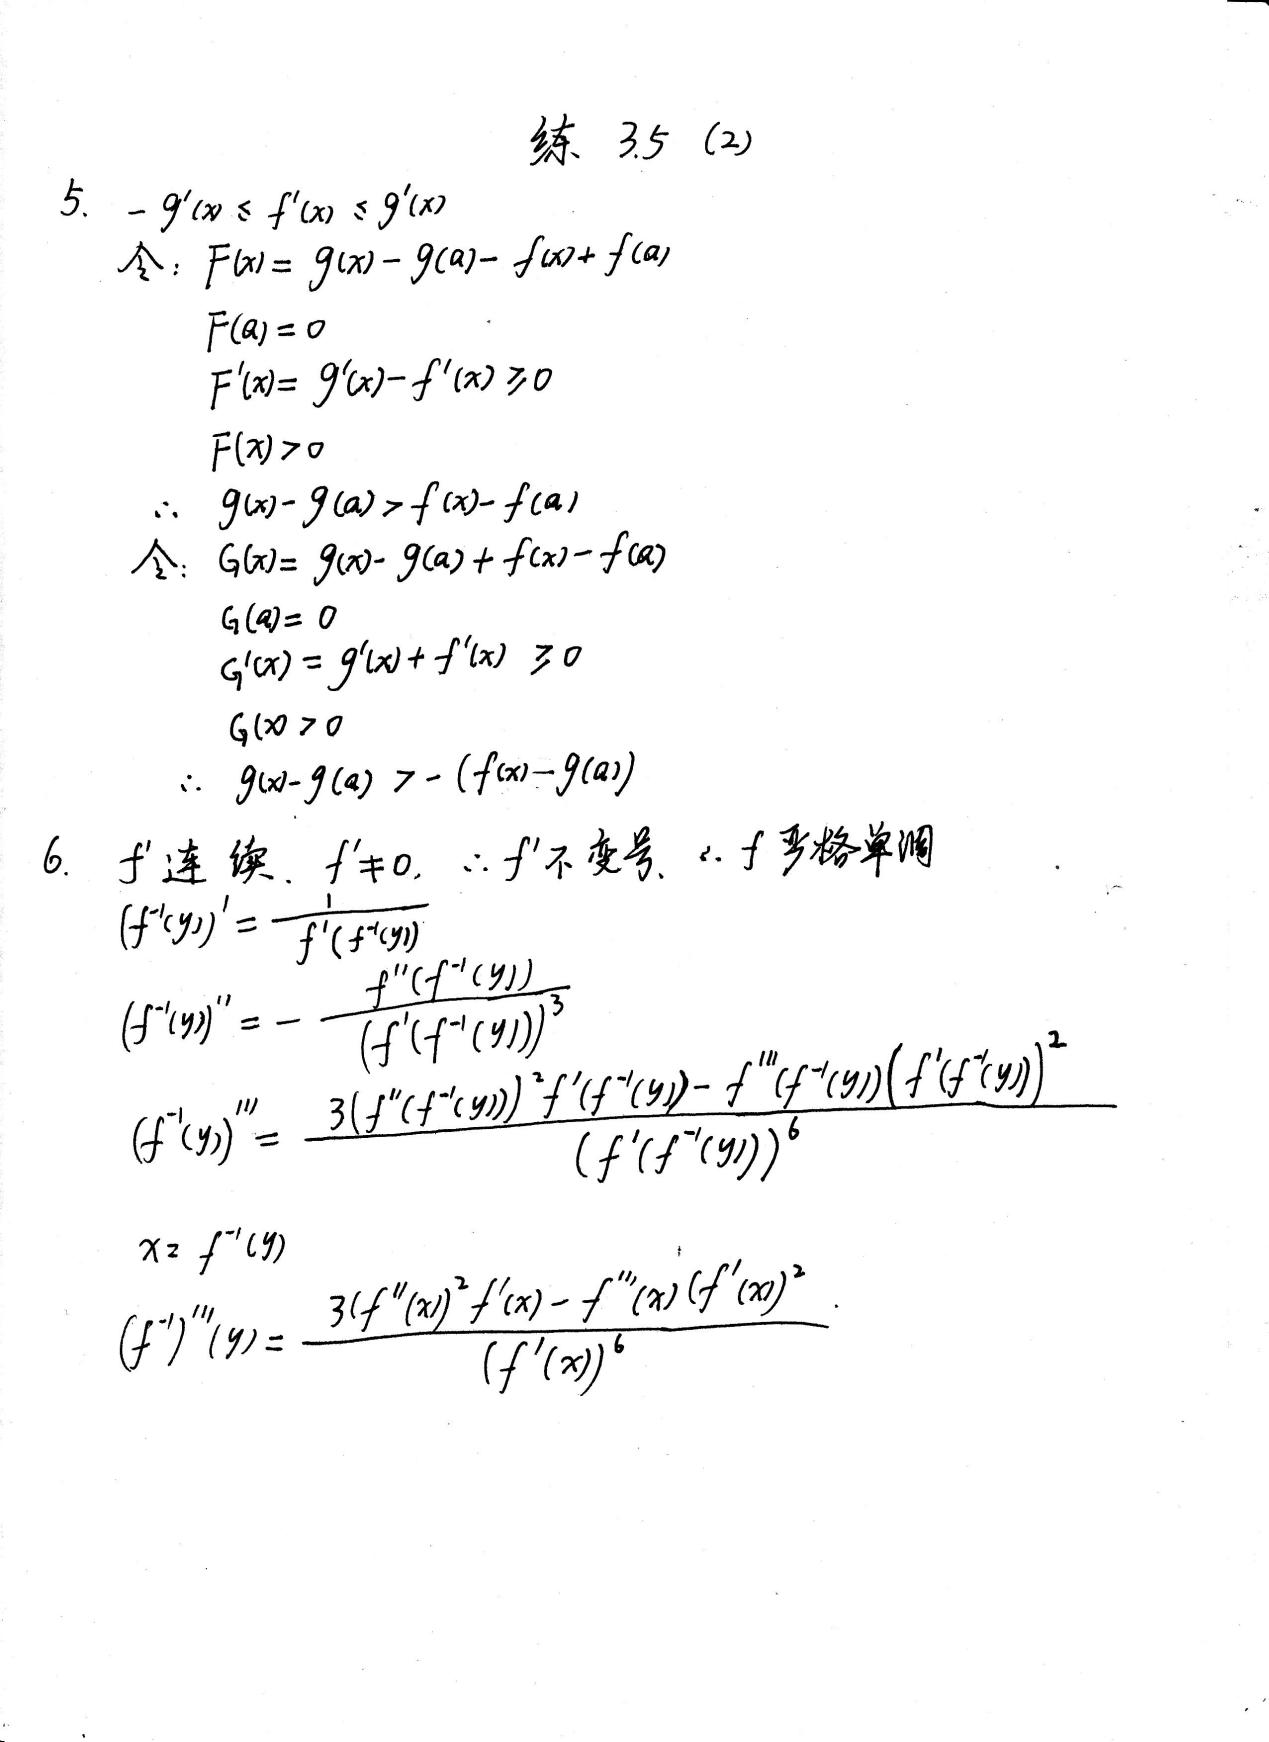 练 3.5 (2)
5. -g'(x) ≤ f'(x) ≤ g'(x)
令: F(x) = g(x) - g(a) - f(x) + f(a)
F(a) = 0
F'(x) = g'(x) - f'(x) ≥ 0
F(x) > 0
∴ g(x) - g(a) > f(x) - f(a)
令: G(x) = g(x) - g(a) + f(x) - f(a)
G(a) = 0
G'(x) = g'(x) + f'(x) ≥ 0
G(x) > 0
∴ g(x) - g(a) > -(f(x) - g(a))
6. f' 连续. f' ≠ 0. ∴ f' 不变号. ∴ f 严格单调
(f⁻¹(y))' = 1 / f'(f⁻¹(y))
(f⁻¹(y))'' = - f''(f⁻¹(y)) / (f'(f⁻¹(y)))³
(f⁻¹(y))''' = 3(f''(f⁻¹(y)))² f'(f⁻¹(y)) - f'''(f⁻¹(y))(f'(f⁻¹(y)))² / (f'(f⁻¹(y)))⁶
x = f⁻¹(y)
(f⁻¹)'''(y) = 3(f''(x))² f'(x) - f'''(x)(f'(x))² / (f'(x))⁶.